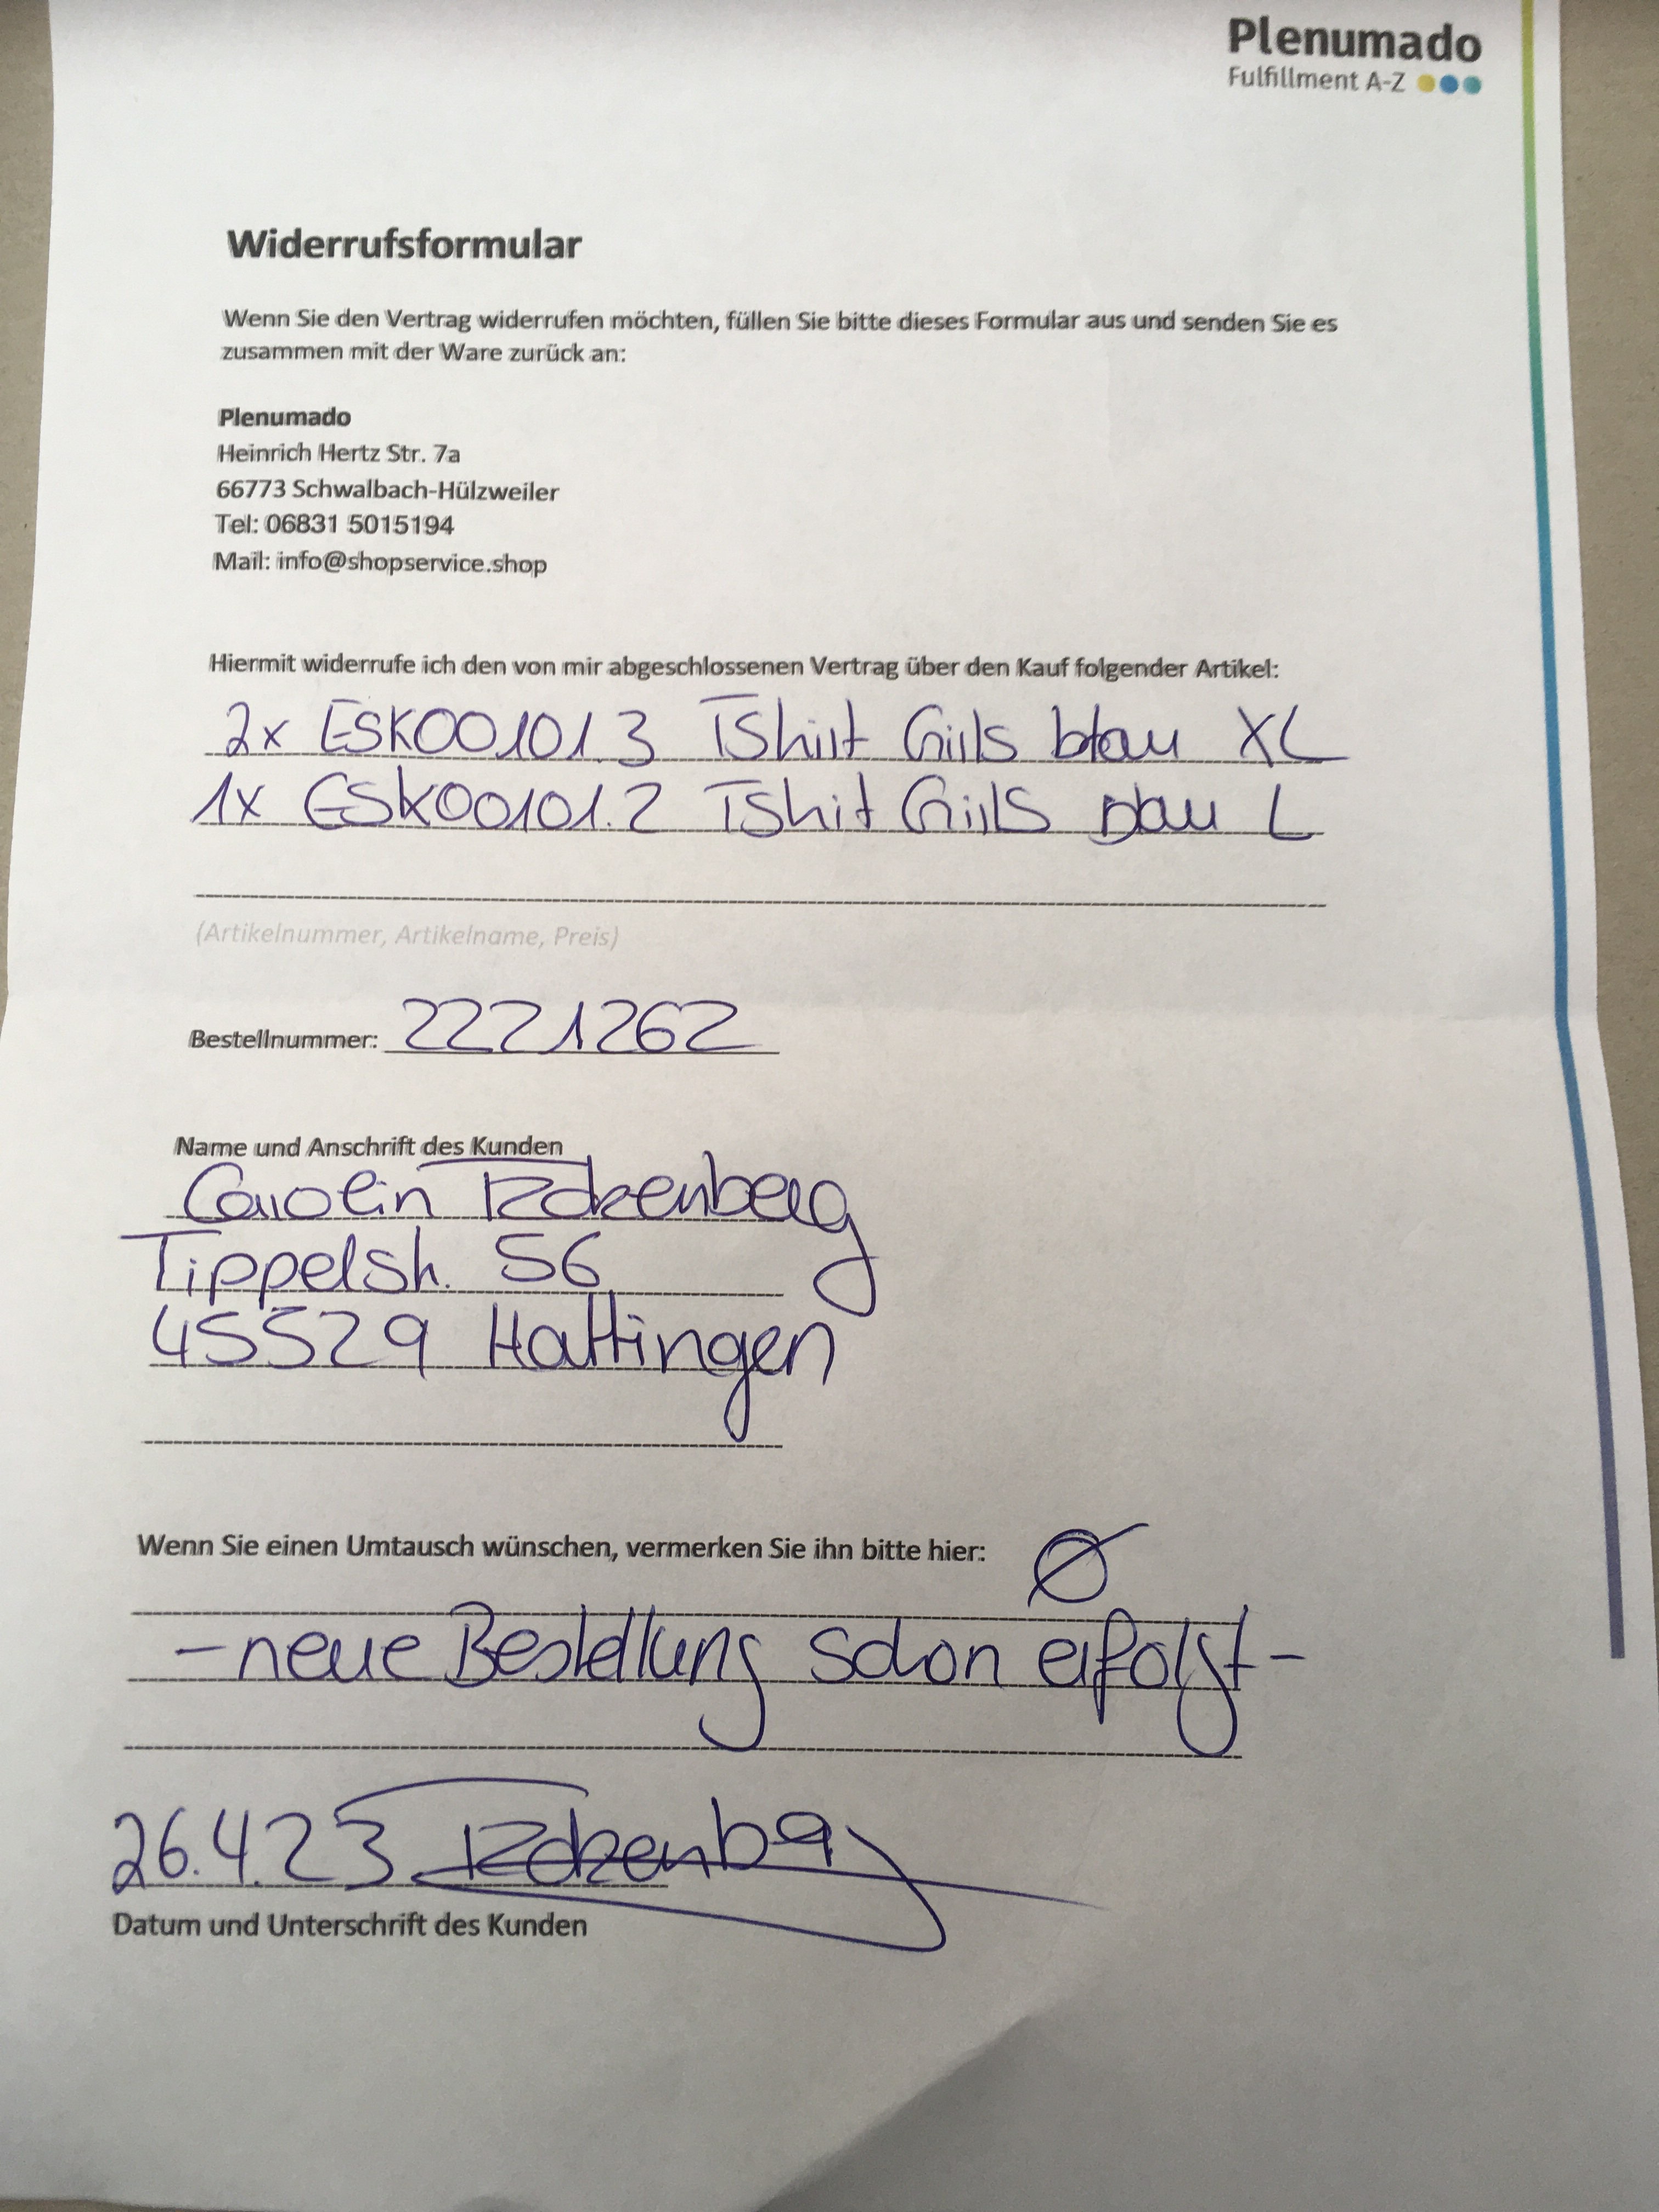 Plenumado
Fulfillment A-Z
Widerrufsformular
Wenn Sie den Vertrag widerrufen möchten, füllen Sie bitte dieses Formular aus und senden Sie es
zusammen mit der Ware zurück an:
Plenumado
Heinrich Hertz Str. 7a
66773 Schwalbach-Hülzweiler
Tel: 06831 5015194
Mail: info@shopservice.shop
Hiermit widerrufe ich den von mir abgeschlossenen Vertrag über den Kauf folgender Artikel:
2x ESK00101.3 TShirt Girls blau XL
1x ESK00101.2 TShirt Girls blau L
(Artikelnummer, Artikelname, Preis)
Bestellnummer: 2221262
Name und Anschrift des Kunden
Carolin
Tippelstr. 56
45529 Hattingen
Wenn Sie einen Umtausch wünschen, vermerken Sie ihn bitte hier: Ø
- neue Bestellung schon erfolgt -
26.4.23
Datum und Unterschrift des Kunden